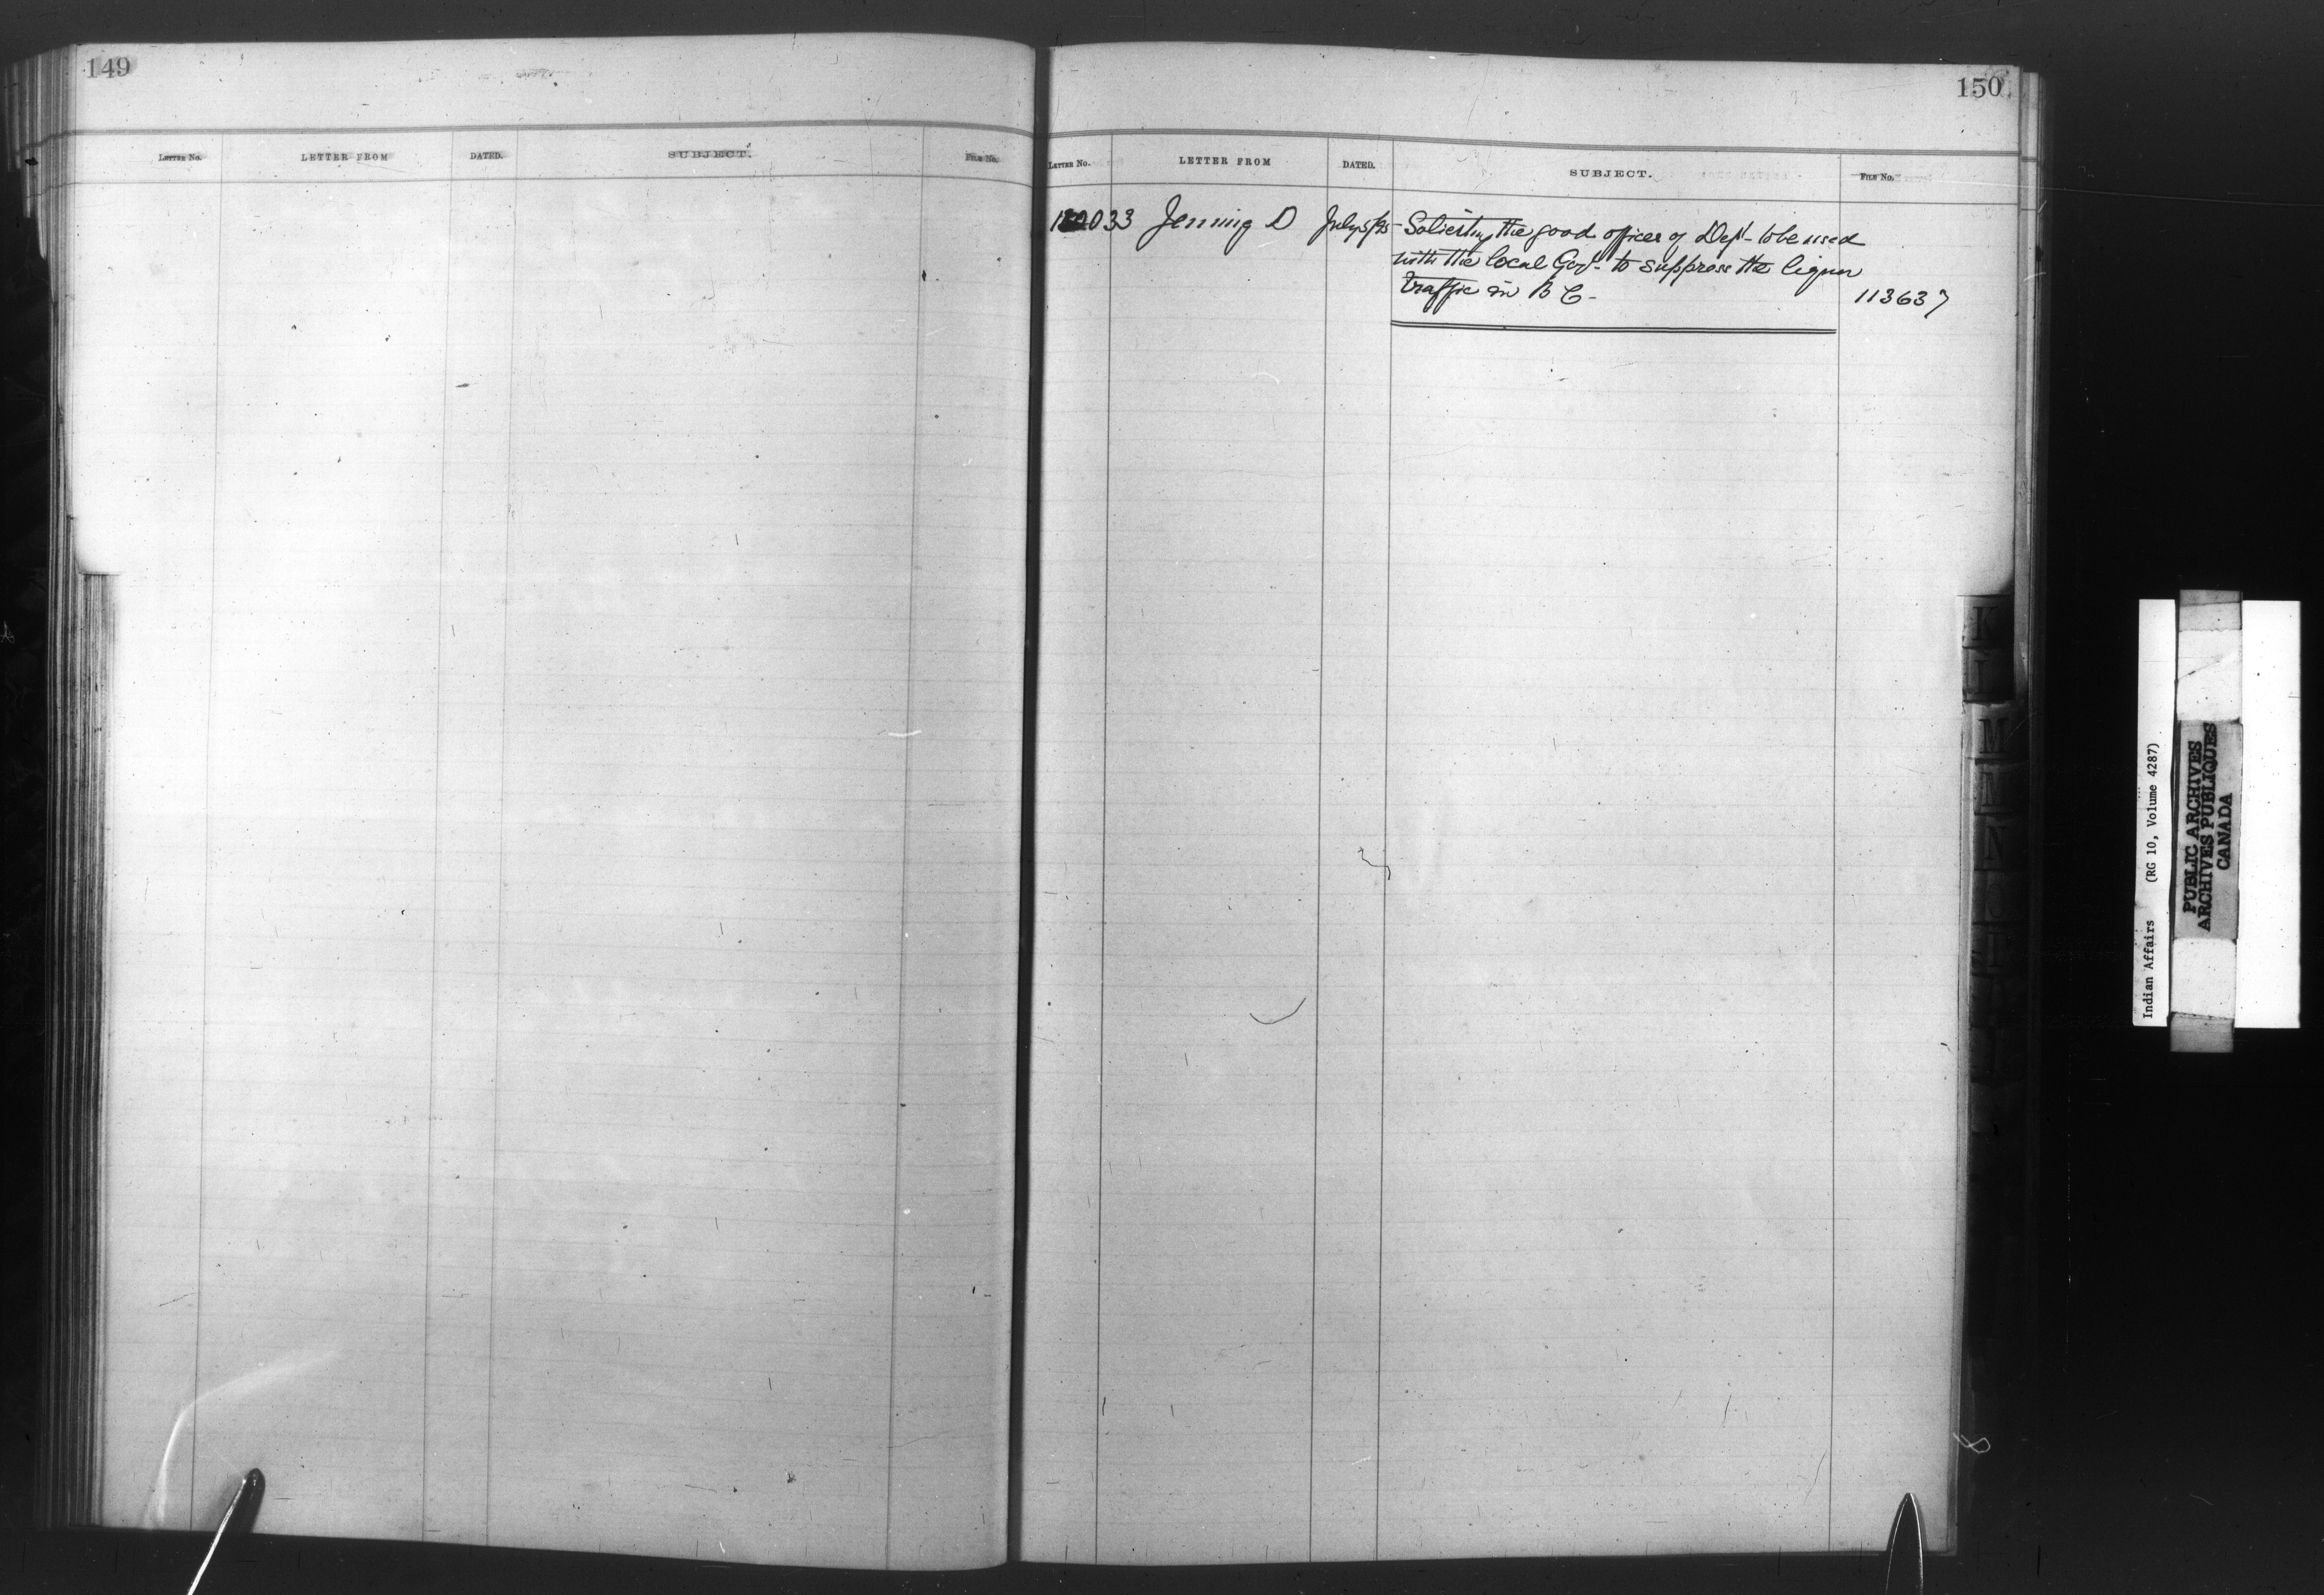 149
LETTER NO. LETTER FROM DATED. SUBJECT. FILE NO.
150
LETTER NO. LETTER FROM DATED. SUBJECT. FILE NO.
033 Jenning D July 5/95 Soliciting the good offices of Dept. to be used
with the local Govt. to suppress the liquor
traffic in B C - 113637
K
L
M
N
Indian Affairs (RG 10, Volume 4287)
PUBLIC ARCHIVES
ARCHIVES PUBLIQUES
CANADA